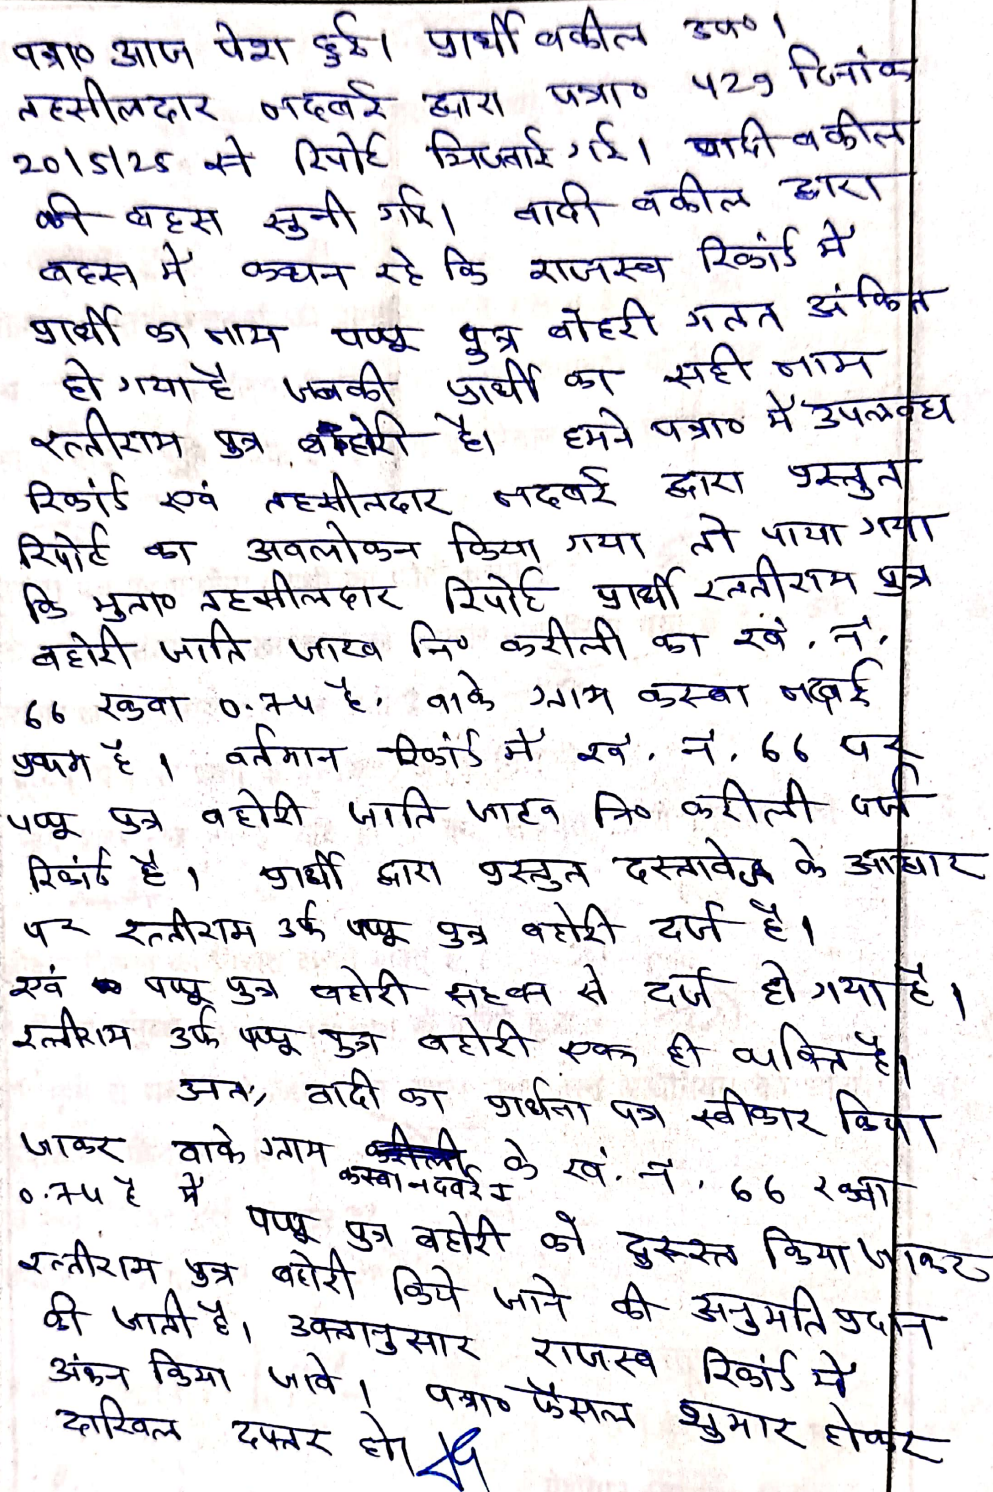 पत्रा० आज पेश हुई। प्रार्थी वकील उप०।
तहसीलदार नदबई द्वारा पत्रा० 429 दिनांक
20/5/25 से रिपोर्ट भिजवाई गई। वादी वकील
की बहस सुनी गई। वादी वकील द्वारा
बहस में कथन रहे कि राजस्व रिकॉर्ड में
प्रार्थी का नाम पप्पू पुत्र बोहरी गलत अंकित
हो गया है जबकी प्रार्थी का सही नाम
रत्तीराम पुत्र बहोरी है। हमने पत्रा० में उपलब्ध
रिकॉर्ड एवं तहसीलदार नदबई द्वारा प्रस्तुत
रिपोर्ट का अवलोकन किया गया तो पाया गया
कि मुता० तहसीलदार रिपोर्ट प्रार्थी रत्तीराम पुत्र
बहोरी जाति जाटव नि० करीली का खं. नं.
66 रकवा 0.74 है. वाके ग्राम कस्बा नदबई
प्रथम है। वर्तमान रिकॉर्ड में खं. नं. 66 पर
पप्पू पुत्र बहोरी जाति जाटव नि० करीली दर्ज
रिकॉर्ड है। प्रार्थी द्वारा प्रस्तुत दस्तावेज के आधार
पर रत्तीराम उर्फ पप्पू पुत्र बहोरी दर्ज है।
एवं पप्पू पुत्र बहोरी सहवन से दर्ज हो गया है।
रत्तीराम उर्फ पप्पू पुत्र बहोरी एक ही व्यक्ति है।
अतः वादी का प्रार्थना पत्र स्वीकार किया
जाकर वाके ग्राम कस्बा नदबई I के खं. नं. 66 रकवा
0.74 है में
पप्पू पुत्र बहोरी को दुरूस्त किया जाकर
रत्तीराम पुत्र बहोरी किये जाने की अनुमति प्रदान
की जाती है। उक्तानुसार राजस्व रिकॉर्ड में
अंकन किया जावे। पत्रा० फैसल शुमार होकर
दाखिल दफ्तर हो।